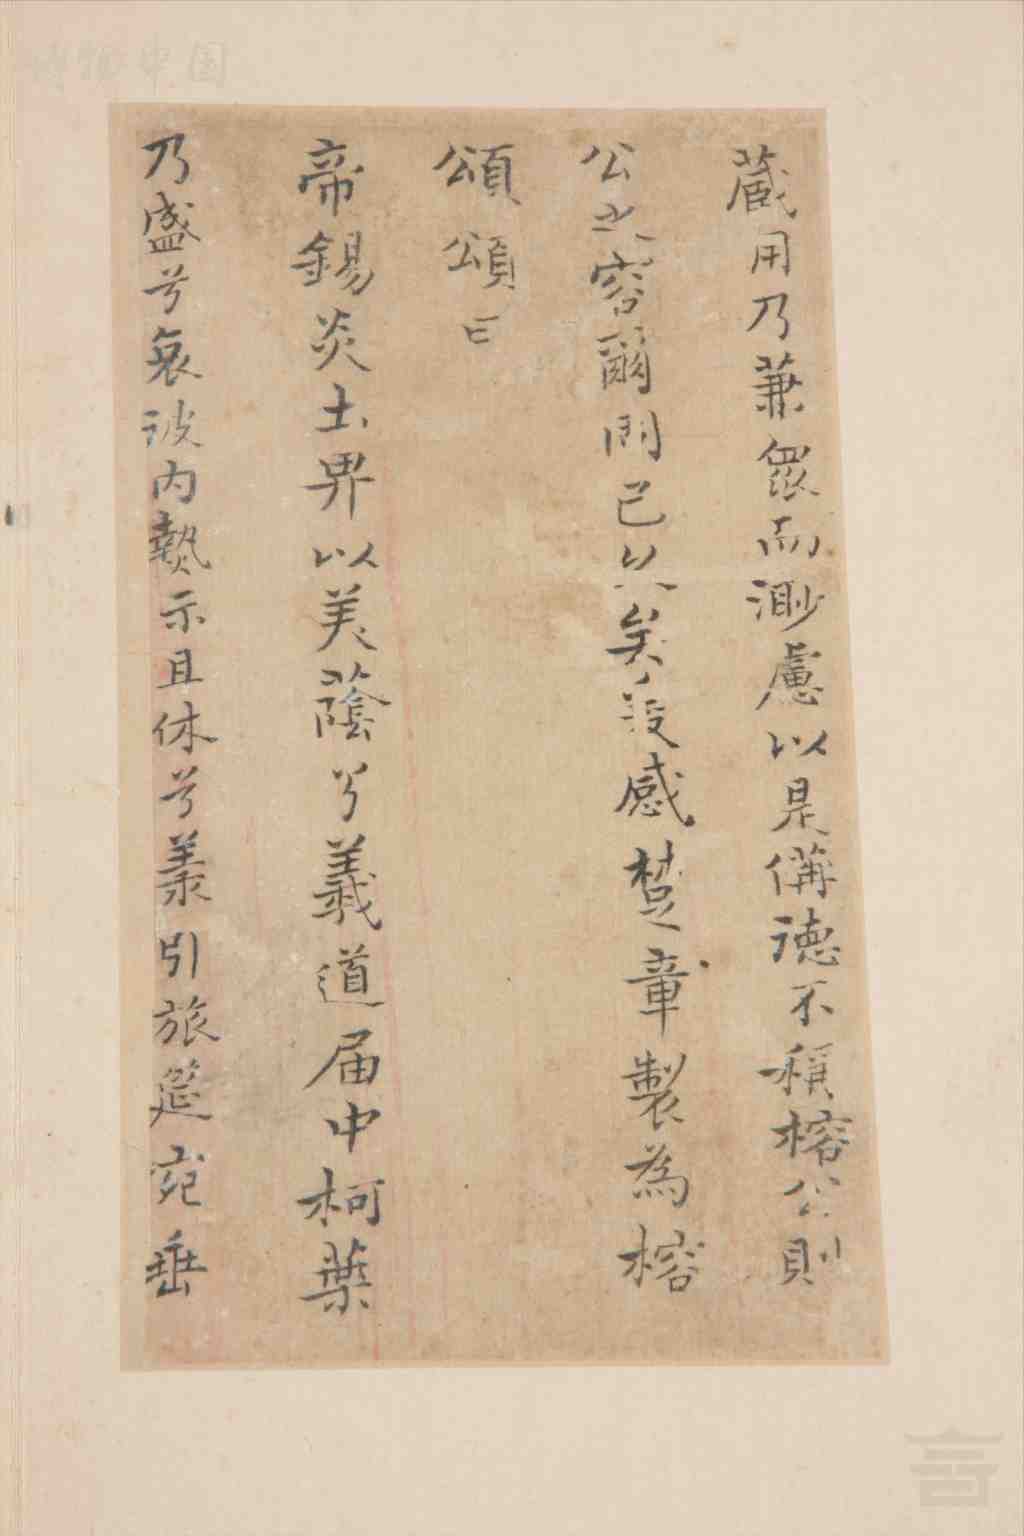 博物中国
蔵用乃兼衆而渺慮以是備德不稱榕公則
公之容爾已矣役感楚章製為榕
頌頌曰
帝錫炎土畀以美蔭兮義道届中柯葉
乃盛兮哀彼内熱示且休兮羕引旅筵宛垂